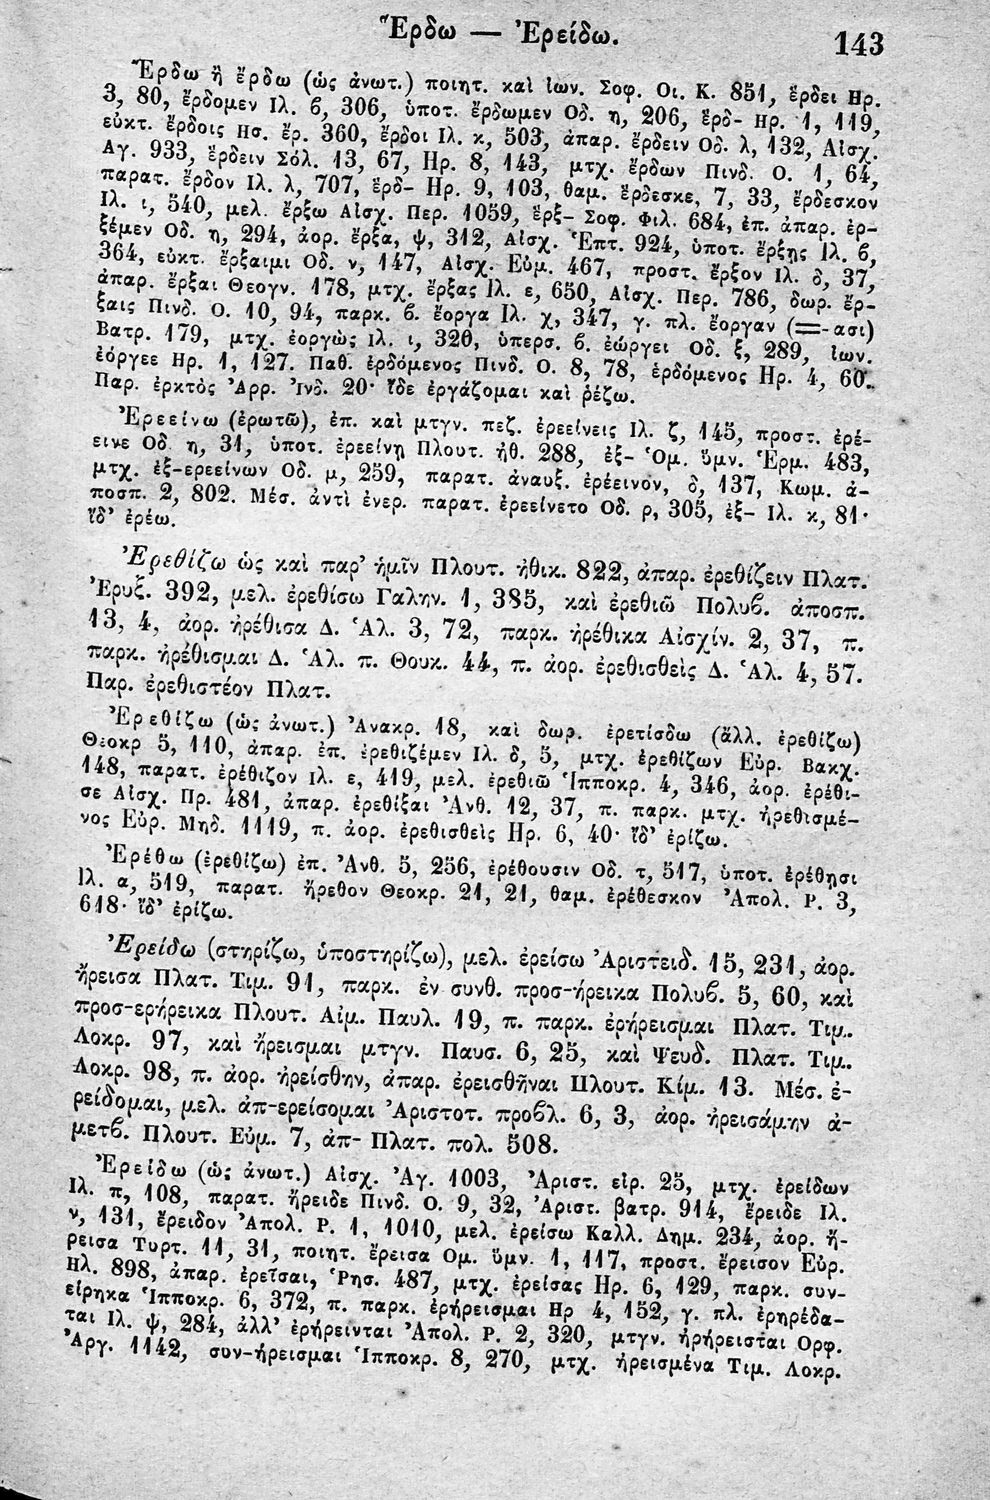 Ἔρδω — Ἐρείδω.
143
Ἔρδω ἢ ἕρδω (ὡς ἀνωτ.) ποιητ. καὶ ἰων. Σοφ. Οι. Κ. 851, ἕρδει Ηρ.
3, 80, ἔρδομεν Ιλ. ϐ, 306, ὑποτ. ἔρδωμεν Οδ. η, 206, ἑρδ- Ηρ. 1, 119,
εὐκτ. ἔρδοις Ησ. ἔρ. 360, ἔρδοι Ιλ. κ, 503, ἀπαρ. ἔρδειν Οδ. λ, 132, Αἰσχ.
Αγ. 933, ἕρδειν Σόλ. 13, 67, Ηρ. 8, 143, μτχ. ἔρδων Πινδ. Ο. 1, 64,
παρατ. ἔρδον Ιλ. λ, 707, ἑρδ- Ηρ. 9, 103, θαμ. ἔρδεσκε, 7, 33, ἔρδεσκον
Ιλ. ι, 540, μελ. ἔρξω Αἰσχ. Περ. 1059, ἑρξ- Σοφ. Φιλ. 684, ἐπ. ἀπαρ. ἐρ-
ξέμεν Οδ. η, 294, ἀορ. ἔρξα, ψ, 312, Αἰσχ. Ἑπτ. 924, ὑποτ. ἔρξῃς Ιλ. ϐ,
364, εὐκτ. ἔρξαιμι Οδ. ν, 147, Αἰσχ. Εὐμ. 467, προστ. ἔρξον Ιλ. δ, 37,
ἀπαρ. ἔρξαι Θεογν. 178, μτχ. ἔρξας Ιλ. ε, 650, Αἰσχ. Περ. 786, δωρ. ἔρ-
ξαις Πινδ. Ο. 10, 94, παρκ. ϐ. ἔοργα Ιλ. χ, 347, γ. πλ. ἔοργαν (=-ασι)
Βατρ. 179, μτχ. ἐοργὼς Ιλ. ι, 320, ὑπερσ. ϐ. ἐώργει Οδ. ξ, 289, ἰων.
ἐόργεε Ηρ. 1, 127. Παθ. ἐρδόμενος Πινδ. Ο. 8, 78, ἑρδόμενος Ηρ. 4, 60.
Παρ. ἐρκτὸς Ἀρρ. Ἰνδ. 20· ἴδε ἐργάζομαι καὶ ῥέζω.
Ἐρεείνω (ἐρωτῶ), ἐπ. καὶ μτγν. πεζ. ἐρεείνεις Ιλ. ζ, 145, προστ. ἐρέ-
εινε Οδ. η, 31, ὑποτ. ἐρεείνῃ Πλουτ. ἠθ. 288, ἐξ- Ὁμ. ὕμν. Ἑρμ. 483,
μτχ. ἐξ-ερεείνων Οδ. μ, 259, παρατ. ἀναυξ. ἐρέεινον, δ, 137, Κωμ. ἀ-
ποσπ. 2, 802. Μέσ. ἀντὶ ἐνερ. παρατ. ἐρεείνετο Οδ. ρ, 305, ἐξ- Ιλ. κ, 81·
ἴδ’ ἐρέω.
Ἐρεθίζω ὡς καὶ παρ’ ἡμῖν Πλουτ. ἠθικ. 822, ἀπαρ. ἐρεθίζειν Πλατ.
Ἐρυξ. 392, μελ. ἐρεθίσω Γαλην. 1, 385, καὶ ἐρεθιῶ Πολυϐ. ἀποσπ.
13, 4, ἀορ. ἠρέθισα Δ. Ἁλ. 3, 72, παρκ. ἠρέθικα Αἰσχίν. 2, 37, π.
παρκ. ἠρέθισμαι Δ. Ἁλ. π. Θουκ. 44, π. ἀορ. ἐρεθισθεὶς Δ. Ἁλ. 4, 57.
Παρ. ἐρεθιστέον Πλατ.
Ἐρεθίζω (ὡς ἀνωτ.) Ἀνακρ. 18, καὶ δωρ. ἐρετίσδω (ἄλλ. ἐρεθίζω)
Θεοκρ 5, 110, ἀπαρ. ἐπ. ἐρεθιζέμεν Ιλ. δ, 5, μτχ. ἐρεθίζων Εὐρ. Βακχ.
148, παρατ. ἐρέθιζον Ιλ. ε, 419, μελ. ἐρεθιῶ Ἱπποκρ. 4, 346, ἀορ. ἐρέθι-
σε Αἰσχ. Πρ. 481, ἀπαρ. ἐρεθίξαι Ἀνθ. 12, 37, π. παρκ. μτχ. ἠρεθισμέ-
νος Εὐρ. Μηδ. 1119, π. ἀορ. ἐρεθισθεὶς Ηρ. 6, 40· ἴδ’ ἐρίζω.
Ἐρέθω (ἐρεθίζω) ἐπ. Ἀνθ. 5, 256, ἐρέθουσιν Οδ. τ, 517, ὑποτ. ἐρέθῃσι
Ιλ. α, 519, παρατ. ἤρεθον Θεοκρ. 21, 21, θαμ. ἐρέθεσκον Ἀπολ. Ρ. 3,
618· ἴδ’ ἐρίζω.
Ἐρείδω (στηρίζω, ὑποστηρίζω), μελ. ἐρείσω Ἀριστειδ. 15, 231, ἀορ.
ἤρεισα Πλατ. Τιμ. 91, παρκ. ἐν συνθ. προσ-ήρεικα Πολυϐ. 5, 60, καὶ
προσ-ερήρεικα Πλουτ. Αἰμ. Παυλ. 19, π. παρκ. ἐρήρεισμαι Πλατ. Τιμ.
Λοκρ. 97, καὶ ἤρεισμαι μτγν. Παυσ. 6, 25, καὶ Ψευδ. Πλατ. Τιμ.
Λοκρ. 98, π. ἀορ. ἠρείσθην, ἀπαρ. ἐρεισθῆναι Πλουτ. Κίμ. 13. Μέσ. ἐ-
ρείδομαι, μελ. ἀπ-ερείσομαι Ἀριστοτ. προϐλ. 6, 3, ἀορ. ἠρεισάμην ἀ-
μετϐ. Πλουτ. Εὐμ. 7, ἀπ- Πλατ. πολ. 508.
Ἐρείδω (ὡς ἀνωτ.) Αἰσχ. Ἀγ. 1003, Ἀριστ. εἰρ. 25, μτχ. ἐρείδων
Ιλ. π, 108, παρατ. ἤρειδε Πινδ. Ο. 9, 32, Ἀριστ. βατρ. 914, ἔρειδε Ιλ.
ν, 131, ἔρειδον Ἀπολ. Ρ. 1, 1010, μελ. ἐρείσω Καλλ. Δημ. 234, ἀορ. ἤ-
ρεισα Τυρτ. 11, 31, ποιητ. ἔρεισα Ομ. ὕμν. 1, 117, προστ. ἔρεισον Εὐρ.
Ηλ. 898, ἀπαρ. ἐρεῖσαι, Ῥησ. 487, μτχ. ἐρείσας Ηρ. 6, 129, παρκ. συν-
είρηκα Ἱπποκρ. 6, 372, π. παρκ. ἐρήρεισμαι Ηρ 4, 152, γ. πλ. ἐρηρέδα-
ται Ιλ. ψ, 284, ἀλλ’ ἐρήρεινται Ἀπολ. Ρ. 2, 320, μτγν. ἠρήρεισται Ορφ.
Ἀργ. 1142, συν-ήρεισμαι Ἱπποκρ. 8, 270, μτχ. ἠρεισμένα Τιμ. Λοκρ.